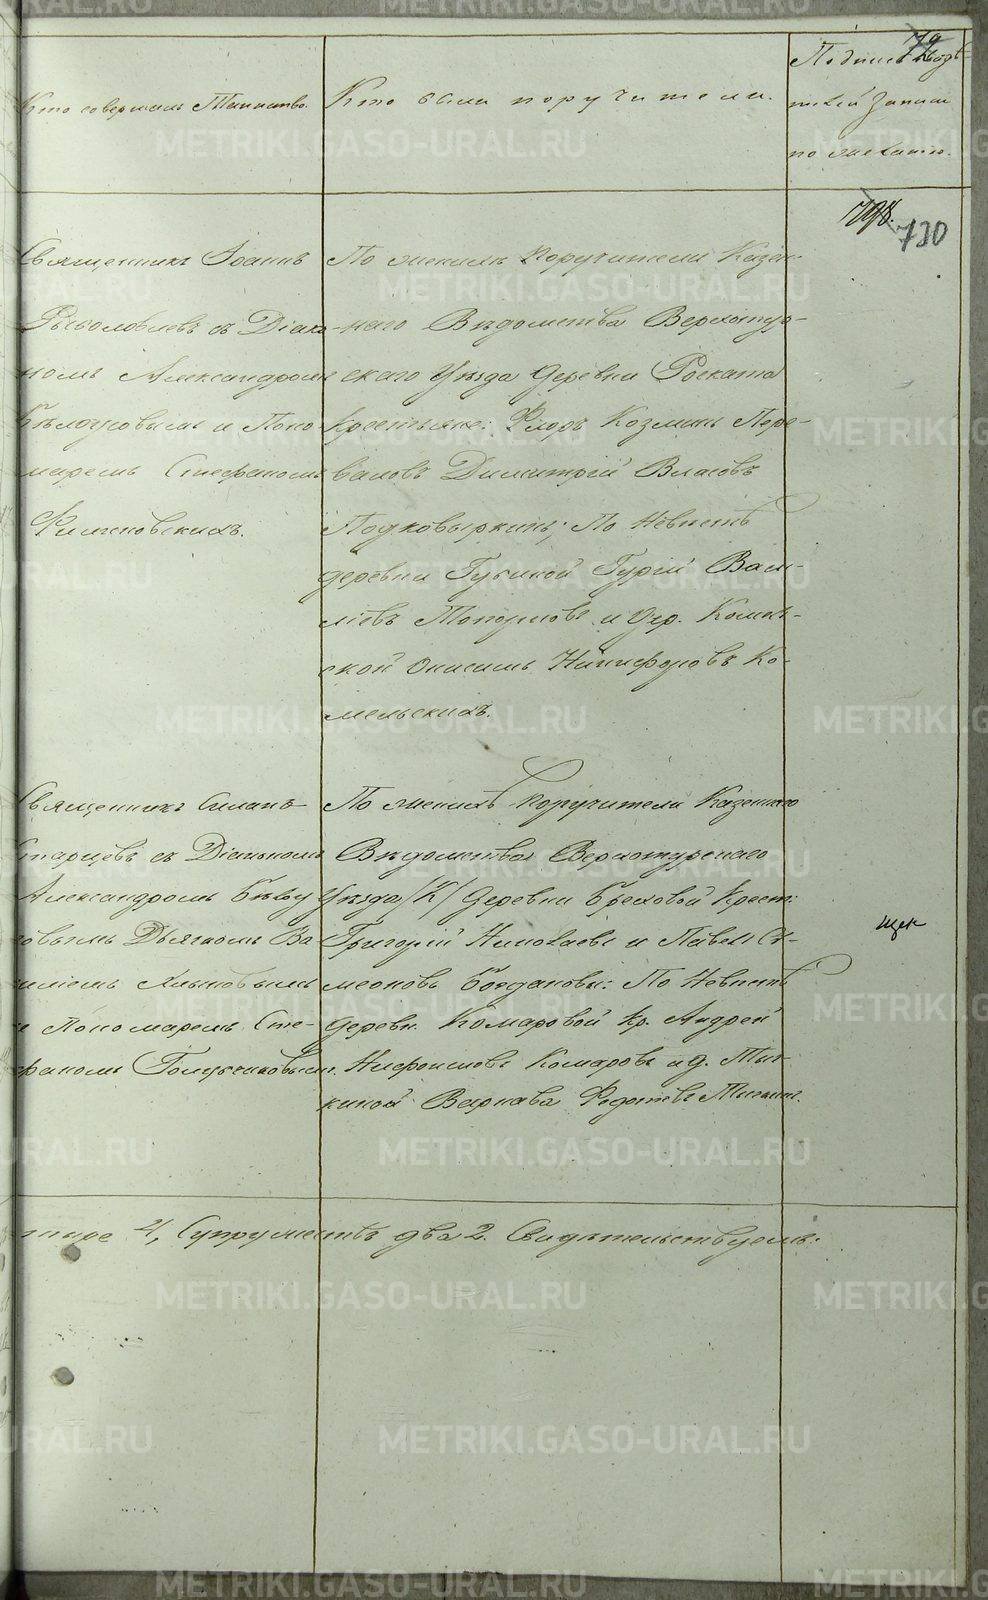 Кто совершалъ Таинство.
Кто были поручители.
Подпись
телей записи
по желанію.
730
Священникъ Іоаннъ
съ Діако-
номъ Александромъ
Бѣлоусовымъ и Поно-
маремъ Стефаномъ
По женихѣ Поручители Казен-
наго Вѣдомства Верхотур-
скаго Уѣзда Деревни Роската
Крестьяне: Флоръ Козминъ Пере-
валовъ Димитрій Власовъ
Подковыркинъ; По Невѣстѣ
деревни Губиной Гурій Васи-
ліевъ Топорковъ и дер. Комель-
ской Онисимъ Никифоровъ Ко-
мельскихъ.
Священникъ Симеонъ
Старцевъ съ Діакономъ
Александромъ Бѣлоу
совымъ Дьячкомъ Ва
силіемъ Хлыновымъ
и Пономаремъ Сте-
фаномъ Голубчиковымъ.
По женихѣ Поручители Казеннаго
Вѣдомства Верхотурскаго
Уѣзда /К/ Деревни Бреховой Крест:
Григорій Николаевъ и Павелъ Си-
меоновъ Богдановы: По Невѣстѣ
Деревни Комаровой Кр. Андрей
Комаровъ и д. Мить-
киной Варнава Федотовъ
тыре 4, Супружествъ два 2. Свидѣтельствуемъ:
METRIKI.GASO-URAL.RU